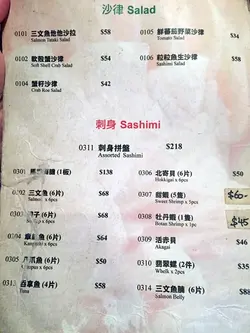 沙律 Salad
0101 三文魚他他沙拉 $58
Salmon Tataki Salad
0102 軟殼蟹沙律 $54
Soft Shell Crab Salad
0104 蟹籽沙律 $42
Crab Roe Salad
0105 鮮蕃茄野菜沙律 $34
Tomato Salad
0106 粒粒魚生沙律 $58
Sashimi Salad
刺身 Sashimi
0311 刺身拼盤 $218
Assorted Sashimi
0301 (1板) $138
0302 三文魚 (6片) $68
Salmon x 6pcs
(6片) $68
x6pcs
0304 (6片) $54
x 6pcs
(6片) $54
x 6pcs
0311 吞拿魚 (4片) $88
Tuna
0306 北寄貝 (6片)
Hokkigai x 6pcs
0307 甜蝦 (5隻) $60-
Sweet Shrimp x 5pcs
0308 牡丹蝦 (1隻) $45
Botan Shrimp x 3pc
0309 活赤貝 $50
Akagai
0310 翡翠螺 (2件) $35
Whelk x 2pcs
0314 三文魚腩 (6片) $88
Salmon Belly